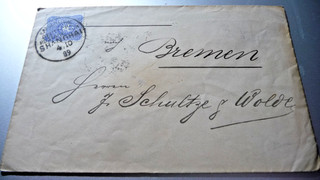 SHANGHAI
4.10
89
Bremen
Herren
J. Schultze & Wolde